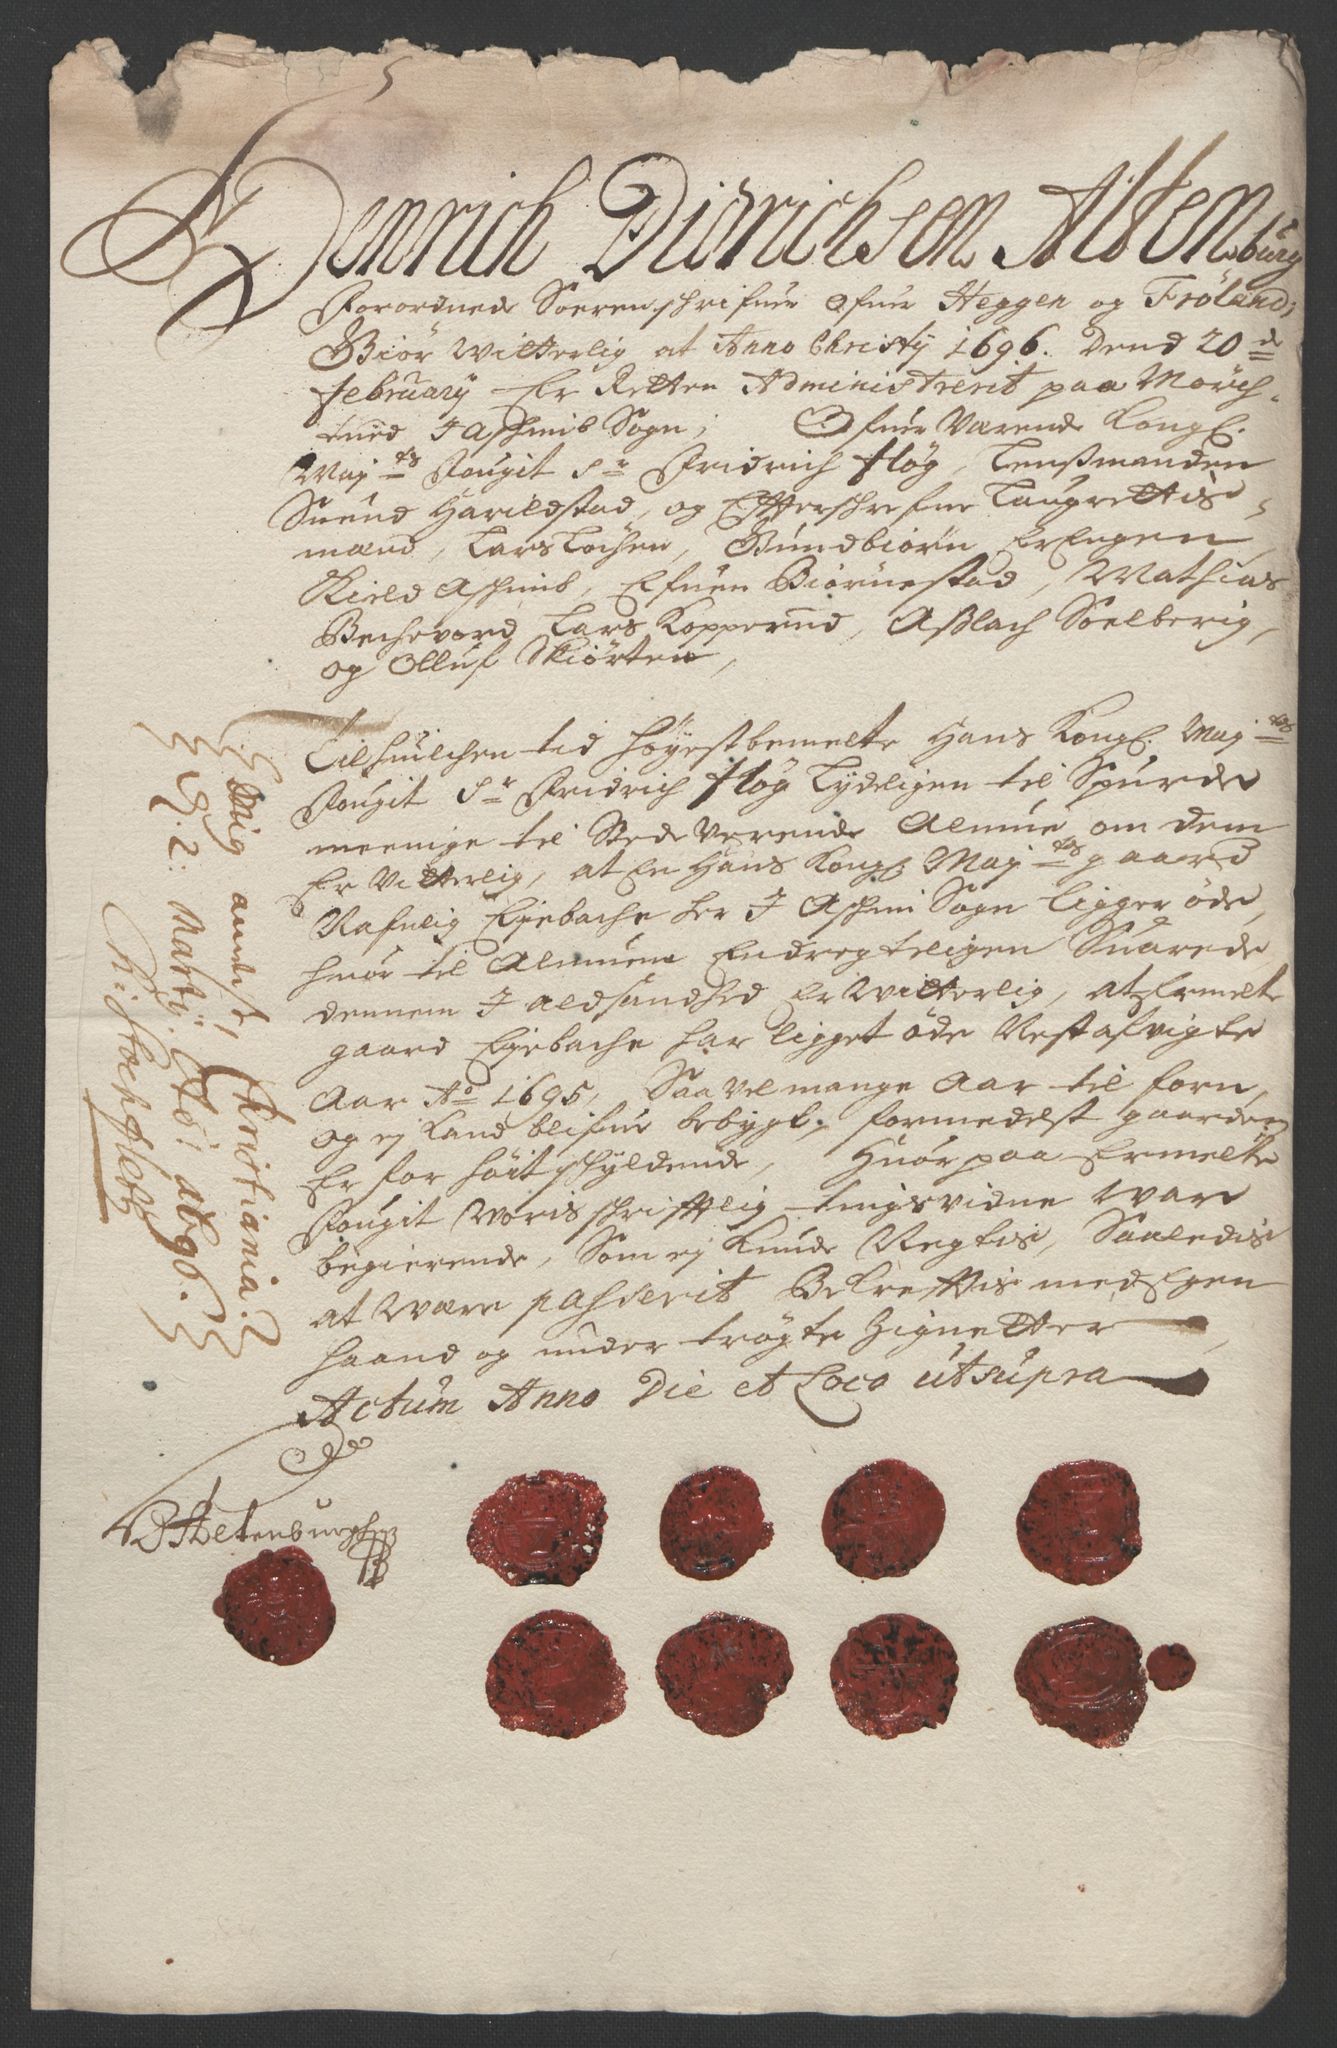 Henrich Didrichsen Altenburg
Forordned Soerenschrifuer Ofuer Heggen og Frøland;
Giør Witterlig at Anno Christij 1696. Dend 20de
february Er Retten Administrerit paa Mørch-
tued I Aschimb Sogn; Ofuer Værende Kongl.
Maj:ts Fougit Sr Fridrich Høg, Lenßmanden
Suend Harildstad, og Efterschrefne Laugrettis
mænd, Lars Lochen, Gundbiørn ErEngen,
Kield Aschimb, Efuen Biørnestad, Mathias
Bechevord, Lars Kopperud, Aßlach Soelberig,
og Olluf Skiørten,
Tilhuilchen tid høyestbemelte Hans Kongl. Maj:ts
Fougit Sr Fridrich Høg Lydeligen til Spurde
meenige til Stede Verende Almue, om dem
Er Vitterlig, at En Hans Kongl. Maj:ts gaard
Nafnlig Egebache her I Aschim Sogn ligger øde,
huor til Almuen Endregteligen Suarede,
dennem I ald sandhed Er Witterlig, at Ermelte
gaard Egebache har ligget øde Nestafvigte
Aar Ao 1695, Saa vel mange Aar til forn,
og ej Kand blifue bebygt, formedelst gaarden
Er for høit schyldende, Huor paa Ermelte
Fougit Woris schrifftlig tingsvidne War
begierende, Som ej Kunde Negtis, Saaledis
at Være passerit Bekrefftis med Egen
haand og under trøgte Zignetter
Actum Anno Die et Loco utsupra
HDAltenburgh
Mig anvist, Christiania.
d. 2. Martij. Ao: 1696.